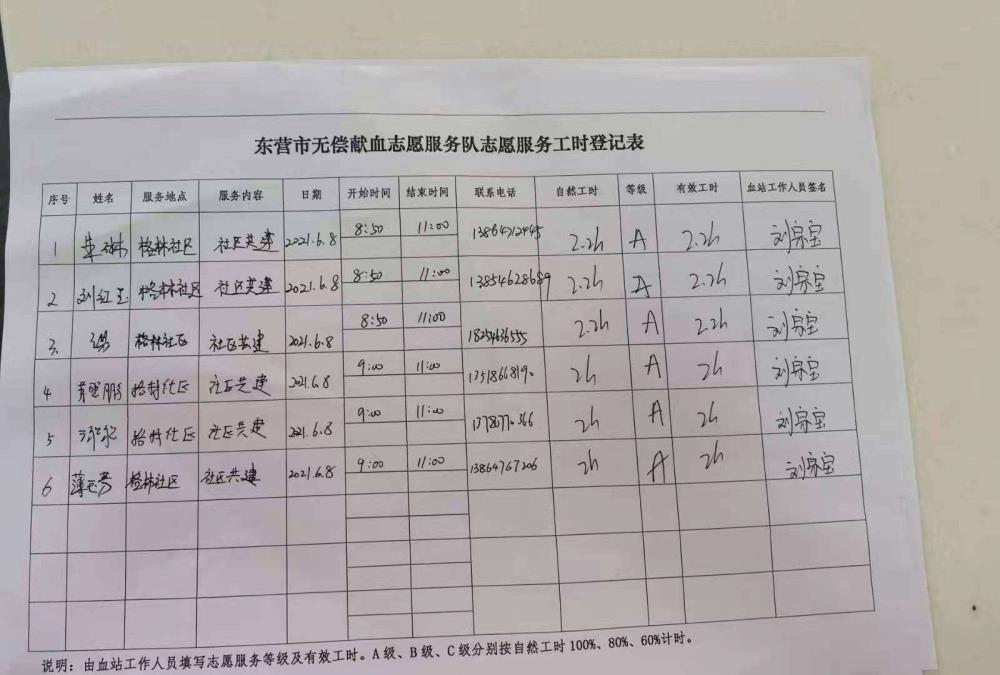 东营市无偿献血志愿服务队志愿服务工时登记表
序号 姓名 服务地点 服务内容 日期 开始时间 结束时间 联系电话 自然工时 等级 有效工时 血站工作人员签名
1 格林社区 社区共建 2021.6.8 8:50 11:00 2.2h A 2.2h 刘宗宝
2 刘红玉 格林社区 社区共建 2021.6.8 8:50 11:00 13854628689 2.2h A 2.2h 刘宗宝
3 格林社区 社区共建 2021.6.8 8:50 11:00 2.2h A 2.2h 刘宗宝
4 社区 社区共建 2021.6.8 9:00 11:00 2h A 2h 刘宗宝
5 社区 社区共建 2021.6.8 9:00 11:00 2h A 2h 刘宗宝
6 格林社区 社区共建 2021.6.8 9:00 11:00 13864767206 2h A 2h 刘宗宝
说明：由血站工作人员填写志愿服务等级及有效工时。A级、B级、C级分别按自然工时100%、80%、60%计时。